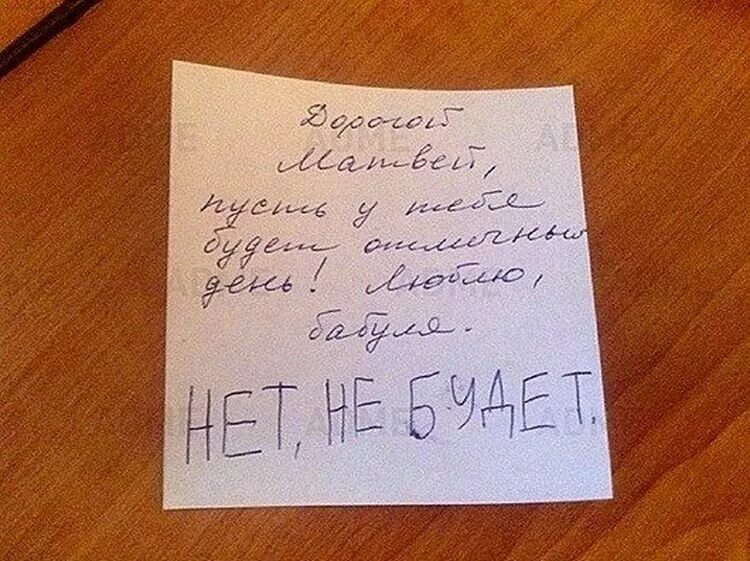 Дорогой
Матвей,
пусть у тебя
будет отличный
день! Люблю,
бабуля.
НЕТ, НЕ БУДЕТ.